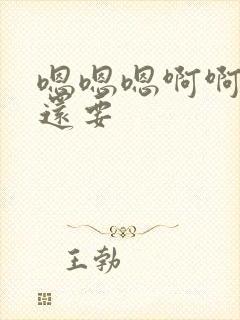 嗯嗯嗯啊啊
還要
王勃